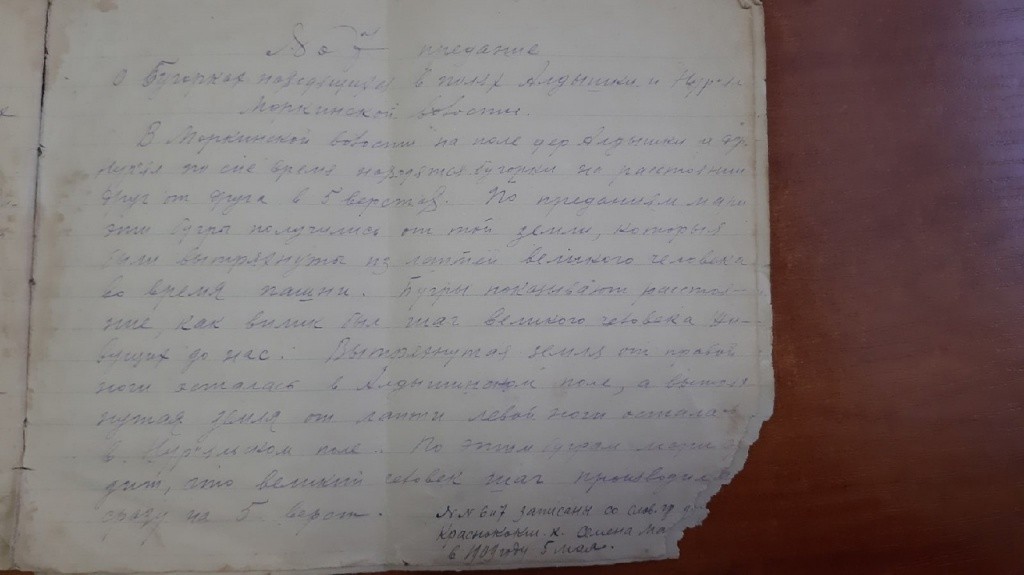 № 7 предание
о Бугорках находящихся в полях Алдышки и
Моркинской вовости.
В Моркинской вовости на поле дер Алдышки и
по сие время находятся бугорки на расстоянии
друг от друга в 5 верстах. По преданием мари
эти бугры получились от той земли, которые
были вытряхнуты из лаптей великого человека
во время пашни. Бугры показывают расстоя-
ние, как вилик был шаг великого человека жи-
вущих до нас. Вытряхнутая земля от правой
ноги осталась в Алдышинском поле, а вытрях
нутая земля от лапти левой ноги остала
в поле. По этим буграм мари
дит, что великий человек шаг производил
сразу на 5 верст.
№№ 6 и 7 записаны со слов гр
Краснококш. к. Семена Ма
в году 5 мая.